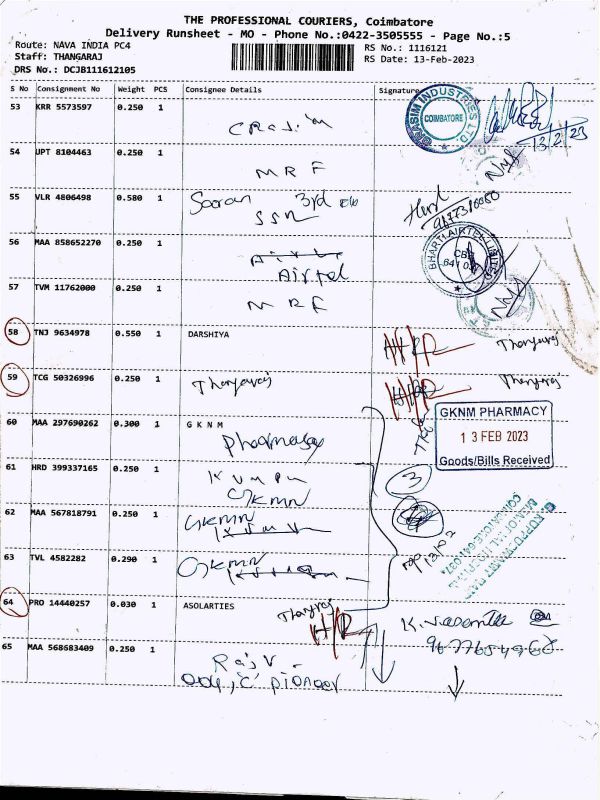 THE PROFESSIONAL COURIERS, Coimbatore
Delivery Runsheet - MO - Phone No.:0422-3505555 - Page No.:5
Route: NAVA INDIA PC4
RS No.: 1116121
Staff: THANGARAJ
RS Date: 13-Feb-2023
DRS No.: DCJB111612105
S No Consignment No Weight PCS Consignee Details Signature
53 KRR 5573597 0.250 1
GRASIM INDUSTRIES LTD
COIMBATORE
13/2/23
54 UPT 8104463 0.250 1
MRF
55 VLR 4806498 0.580 1 3rd
SSN
56 MAA 858652270 0.250 1
Airtel
BHARTI AIRTEL LIMITED
57 TVM 11762000 0.250 1
MRF
58 TNJ 9634978 0.550 1 DARSHIYA
Thangaraj
59 TCG 50326996 0.250 1 Thangaraj
Thangaraj
60 MAA 297690262 0.300 1 G K N M
Pharmacy
GKNM PHARMACY
13 FEB 2023
Goods/Bills Received
61 HRD 399337165 0.250 1
GKMN
3
62 MAA 567818791 0.250 1 GKMN
63 TVL 4582282 0.290 1 GKMN
64 PRO 14440257 0.030 1 ASOLARTIES
Thangaraj
65 MAA 568683409 0.250 1
Raj V